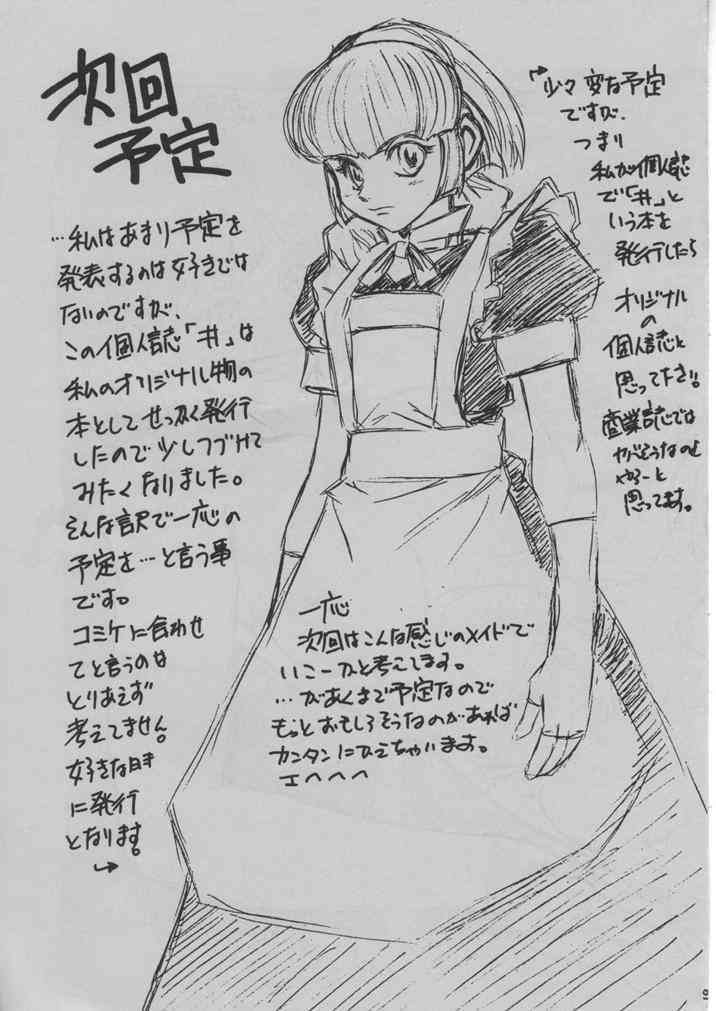 次回
予定
…私はあまり予定を
発表するのは好きでは
ないのですが、
この個人誌「井」は
私のオリジナル物の
本としてせっかく発行
したので少しつづけて
みたくなりました。
そんな訳で一応の
予定を…と言う事
です。
コミケに合わせ
てと言うのは
とりあえず
考えてません。
好きな時
に発行
となります。
→
少々変な予定
ですが、
つまり
私が個人誌
で「井」と
いう本を
発行したら
オリジナル
の
個人誌と
思って下さい。
商業誌では
やろーと
思ってます。
一応
次回はこんな感じのメイドで
いこーかと考えてます。
…があくまで予定なので
もっとおもしろそうなのがあれば
カンタンにかえちゃいます。
エヘヘヘ